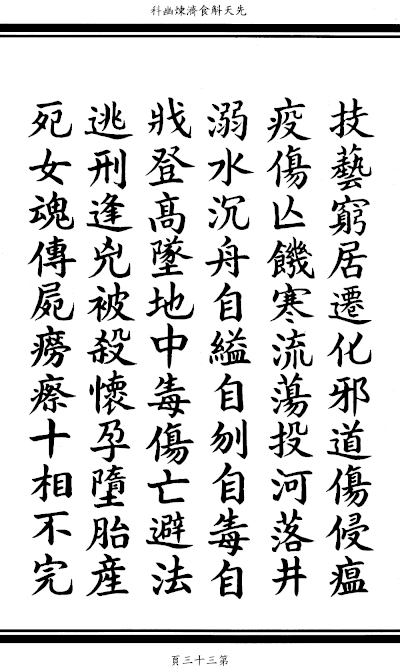 先天斛食濟煉幽科
技藝窮居遷化邪道傷侵瘟
疫傷亾饑寒流蕩投河落井
溺水沉舟自縊自刎自毒自
戕登高墜地中毒傷亡避法
逃刑逢兇被殺懷孕墮胎産
死女魂傳屍癆瘵十相不完
第三十三頁